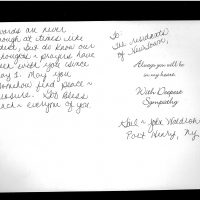 words are never
enough at times like
this, but do know our
thoughts & prayers have
been with you since
day 1. May you
somehow find peace &
God bless
each & everyone of you.
To:
The residents
of Newtown,
Always you will be
in my heart
With Deepest
Sympathy
Port Henry, NY